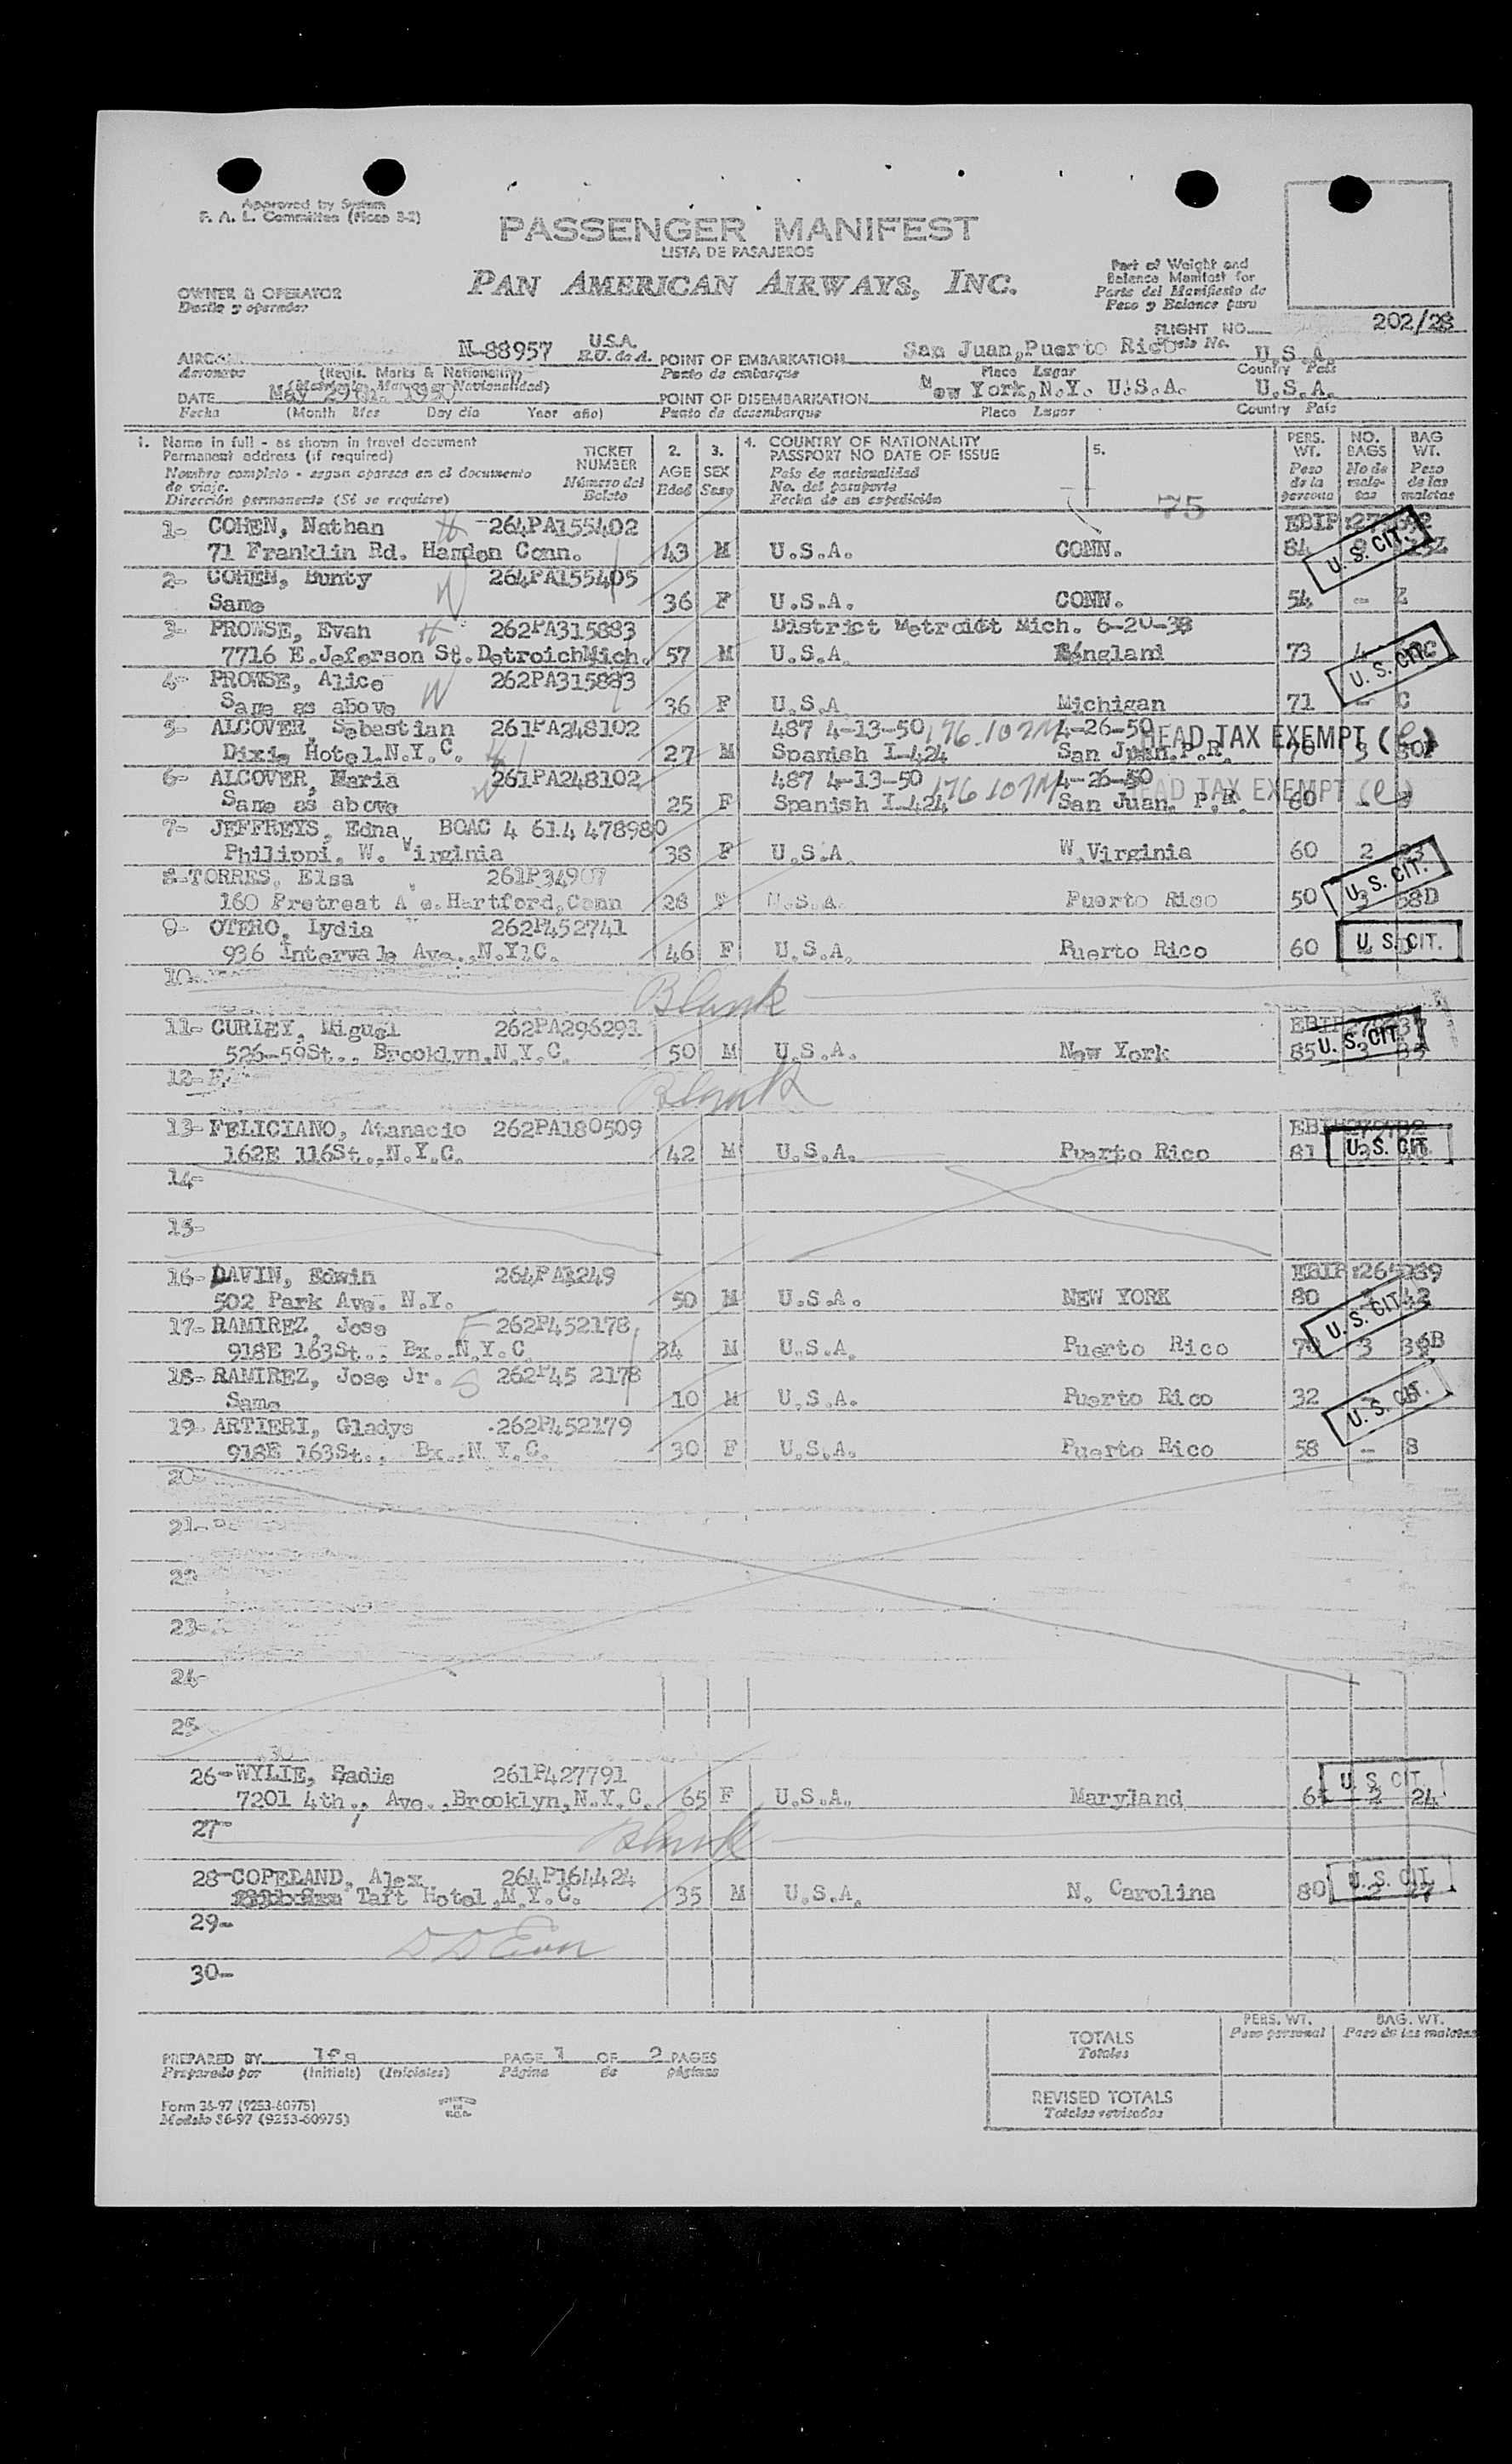 Approved by System
F. A. L. Committee (Picao 3-2)
PASSENGER MANIFEST
LISTA DE PASAJEROS
PAN AMERICAN AIRWAYS, INC.
OWNER & OPERATOR
Dueño y operador
Part of Weight and
Balance Manifest for
Parte del Manifiesto de
Peso y Balance para
FLIGHT NO. 202/28
Vuelo No.
N-88957 U.S.A.
E.U. de A.
Aeronave (Regis. Marks & Nationality)
POINT OF EMBARKATION San Juan, Puerto Rico U.S.A.
Punto de embarque Place Lugar Country País
DATE May 29th. 1950
Fecha (Month Mes Day día Year año)
POINT OF DISEMBARKATION New York, N.Y. U.S.A. U.S.A.
Punto de desembarque Place Lugar Country País
1. Name in full - as shown in travel document
Permanent address (if required)
Nombre completo - segun aparece en el documento
de viaje.
Dirección permanente (Si se requiere)
TICKET
NUMBER
Número del
Boleto
2.
AGE
Edad
3.
SEX
Sexo
4. COUNTRY OF NATIONALITY
PASSPORT NO DATE OF ISSUE
País de nacionalidad
No. del pasaporte
Fecha de su expedición
5.
75
PERS.
WT.
Peso
de la
persona
NO.
BAGS
No de
male-
tas
BAG
WT.
Peso
de las
maletas
1- COHEN, Nathan H 264PA155402
71 Franklin Rd. Hamden Conn. 43 M U.S.A. CONN. 84
U. S. CIT.
2- COHEN, Bunty W 264PA155405
Same 36 F U.S.A. CONN. 54 - Z
3- PROWSE, Evan H 262PA315883 District Metroidt Mich. 6-20-38
7716 E.Jeferson St.DetroichMich. 57 M U.S.A. England 73 4
U. S. CIT.
4- PROWSE, Alice W 262PA315883
Same as above 36 F U.S.A Michigan 71 - C
5- ALCOVER, Sebastian 261PA248102 487 4-13-50 4-26-50
HEAD TAX EXEMPT (e)
Dixie Hotel.N.Y.C. H 27 M Spanish I-424 San Juan.P.R. 70 3
6- ALCOVER, Maria W 261PA248102 487 4-13-50 4-26-50
HEAD TAX EXEMPT (e)
Same as above 25 F Spanish I-424 San Juan. P.R. 60 -
7- JEFFREYS, Edna, BOAC 4 614 478980
Philippi. W. Virginia 38 F U.S.A. W.Virginia 60 2
U. S. CIT.
8-TORRES, Elsa 261P34907
160 Pretreat A e.Hartford,Conn 28 F U.S.A. Puerto Rico 50 3 58D
9- OTERO, Lydia 262P452741
936 Intervale Ave..N.Y.C. 46 F U.S.A. Puerto Rico 60
U. S. CIT.
10-
Blank
11- CURLEY, Miguel 262PA296291
526-59St., Brooklyn,N.Y.C. 50 M U.S.A. New York 85 3
U. S. CIT.
12-
Blank
13- FELICIANO, Atanacio 262PA180509
162E 116St..N.Y.C. 42 M U.S.A. Puerto Rico 81
U. S. CIT.
14-
15-
16- DAVIN, Edwin
502 Park Ave. N.Y. 50 M U.S.A. NEW YORK 80 42
U. S. CIT.
17- RAMIREZ, Jose F 262P452178
918E 163St.. Bx..N.Y.C 34 M U.S.A. Puerto Rico 70 3
18- RAMIREZ, Jose Jr. S 262P45 2178
Same 10 M U.S.A. Puerto Rico 32
U. S. CIT.
19- ARTIERI, Gladys 262P452179
918E 163St., Bx..N Y.C. 30 F U.S.A. Puerto Rico 58 -
20-
21-
22-
23-
24-
25-
26-WYLIE, Sadie 261P427791
7201 4th., Ave.,Brooklyn,N.Y.C. 65 F U.S.A. Maryland 2 24
U. S. CIT.
27-
Blank
28-COPELAND, Alex 264P164424
Taft Hotel,N.Y.C. 35 M U.S.A. N. Carolina 80 2 27
U. S. CIT.
29-
30-
PREPARED BY
Preparado por (Initials) (Iniciales)
PAGE 1 OF 2 PAGES
Página de páginas
Form 36-97 (9253-60975)
Modelo 36-97 (9253-60975)
TOTALS
Totales
REVISED TOTALS
Totales revisados
PERS. WT.
Peso personal
BAG. WT.
Peso de las maletas